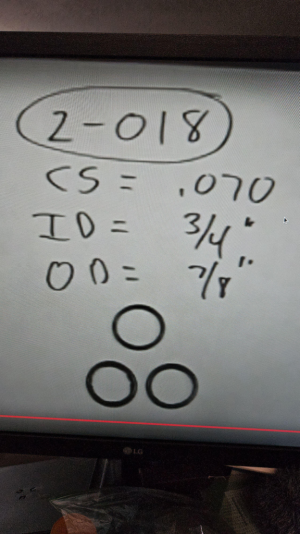 2-018
CS = .070
ID = 3/4"
OD = 7/8"
LG